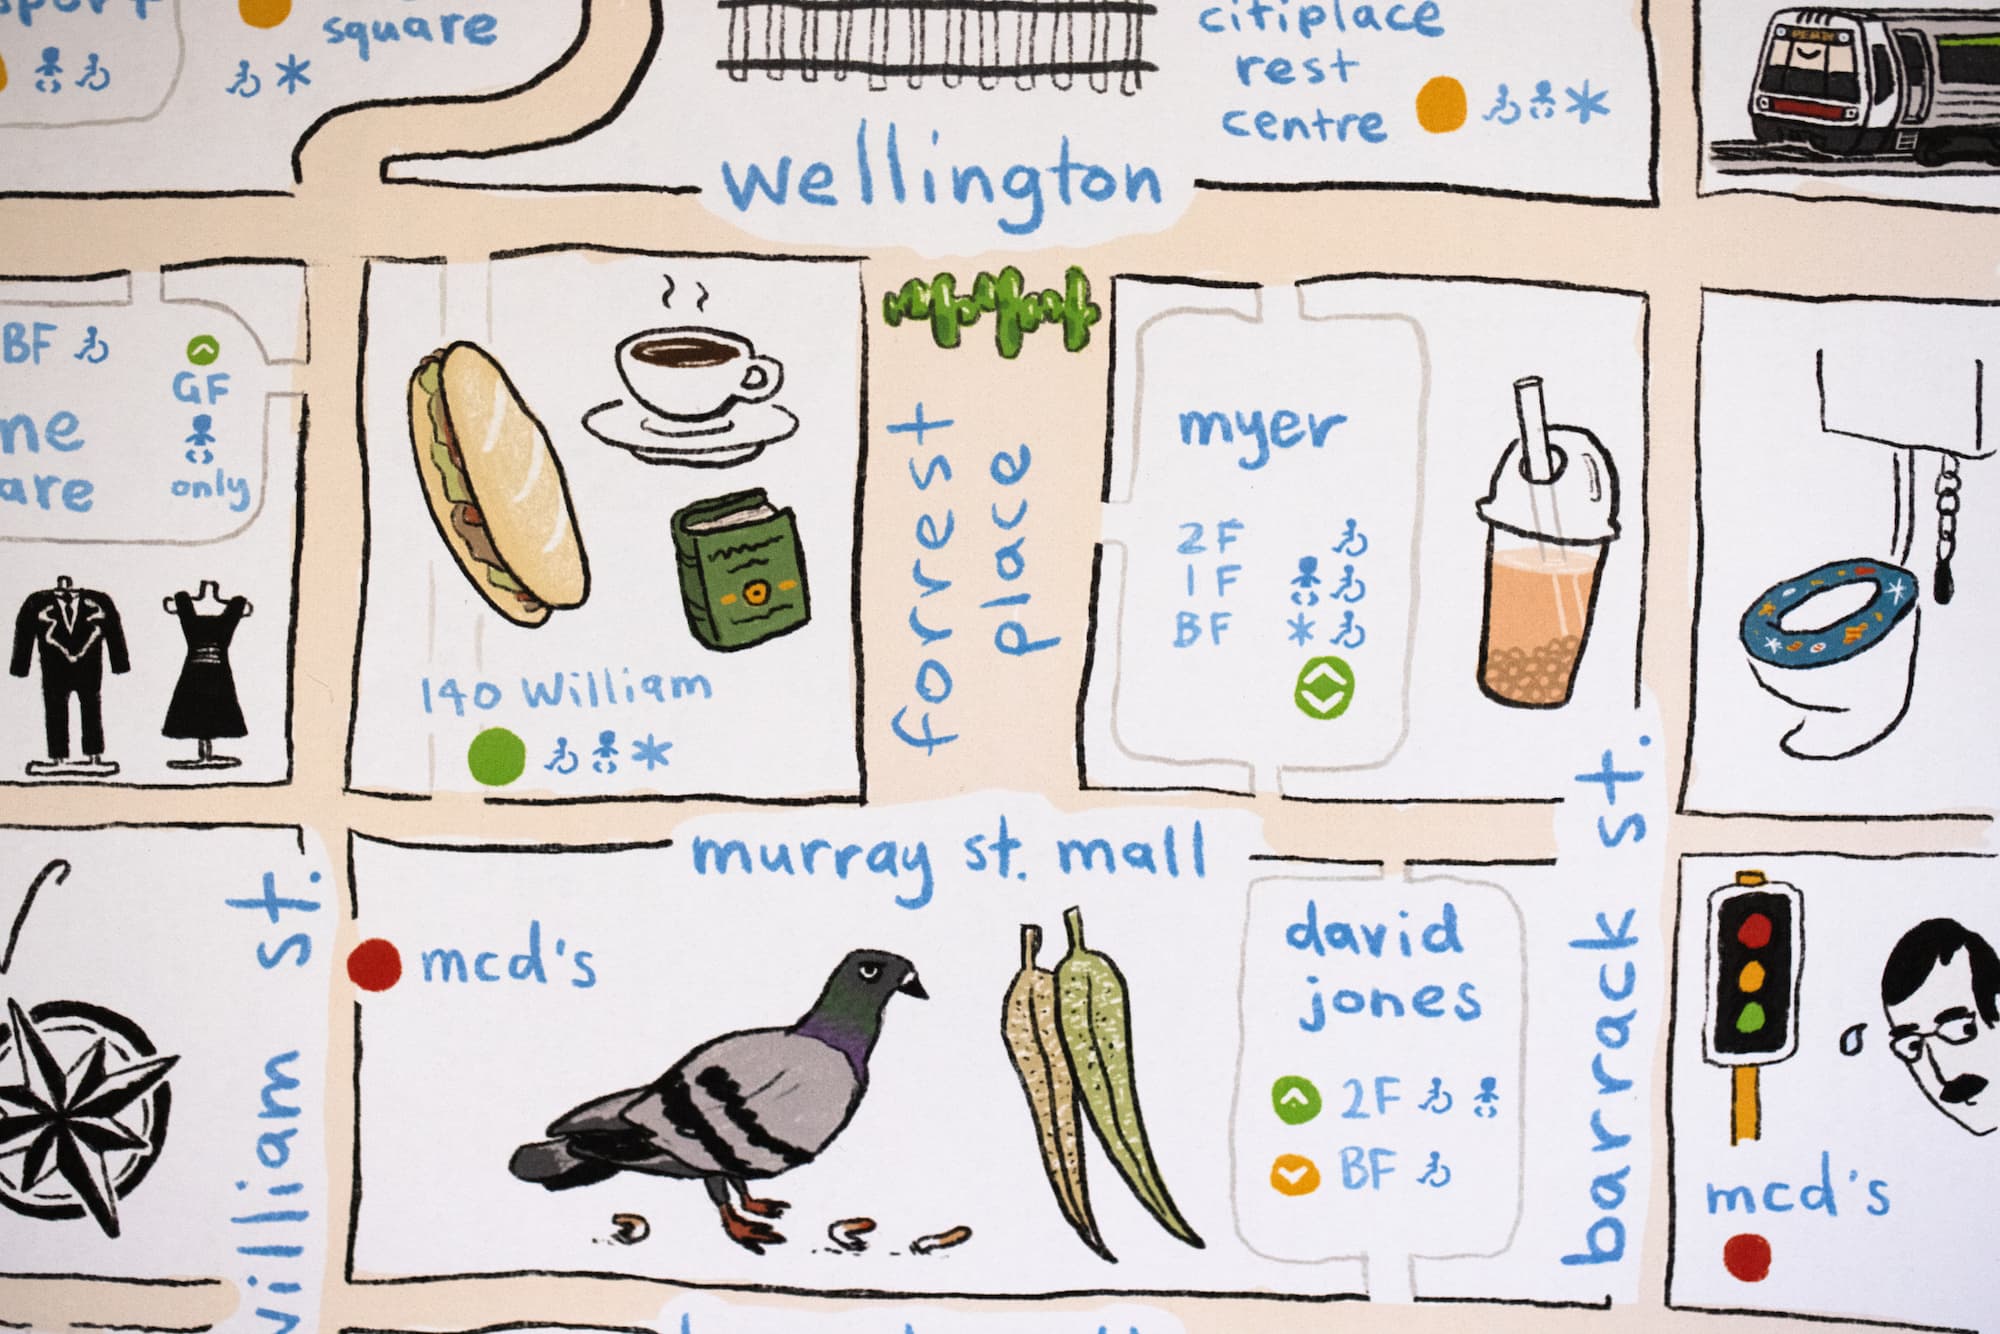 square
citiplace
rest
centre
PERTH
wellington
BF
GF
only
forrest
place
myer
2F
1F
BF
140 William
murray st. mall
mcd's
david
jones
2F
BF
william st.
barrack st.
mcd's